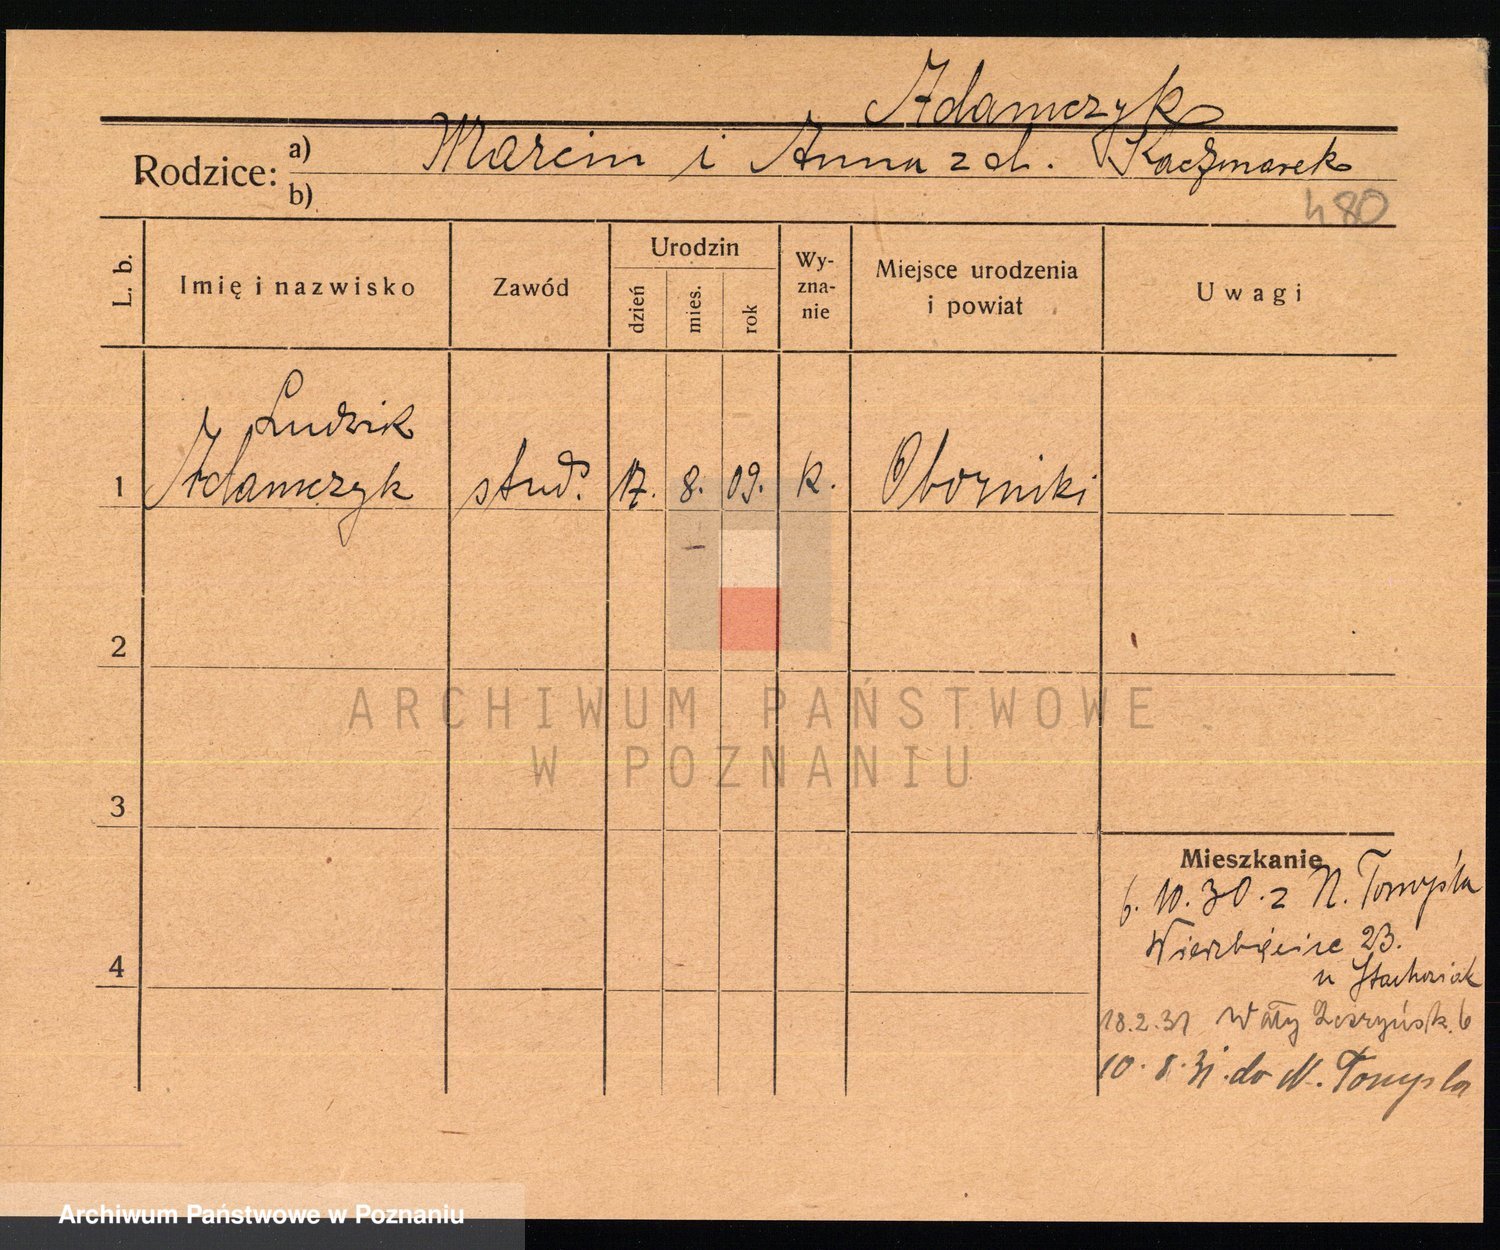 Adamczyk
Rodzice: a) Marcin i Anna z d. Kaczmarek
b)
480
L. b.
Imię i nazwisko
Zawód
Urodzin
dzień
mies.
rok
Wy-
zna-
nie
Miejsce urodzenia
i powiat
Uwagi
Ludwik
1 Adamczyk stud. 17. 8. 09. k. Oborniki
2
ARCHIWUM PAŃSTWOWE
W POZNANIU
3
Mieszkanie
6. 10. 30. z N. Tomyśla
4
Wierzbięcice 23.
u Stachowiak
18.2.31 Wały Leszczyńsk. 6
10. 8. 31. do N. Tomysla
Archiwum Państwowe w Poznaniu